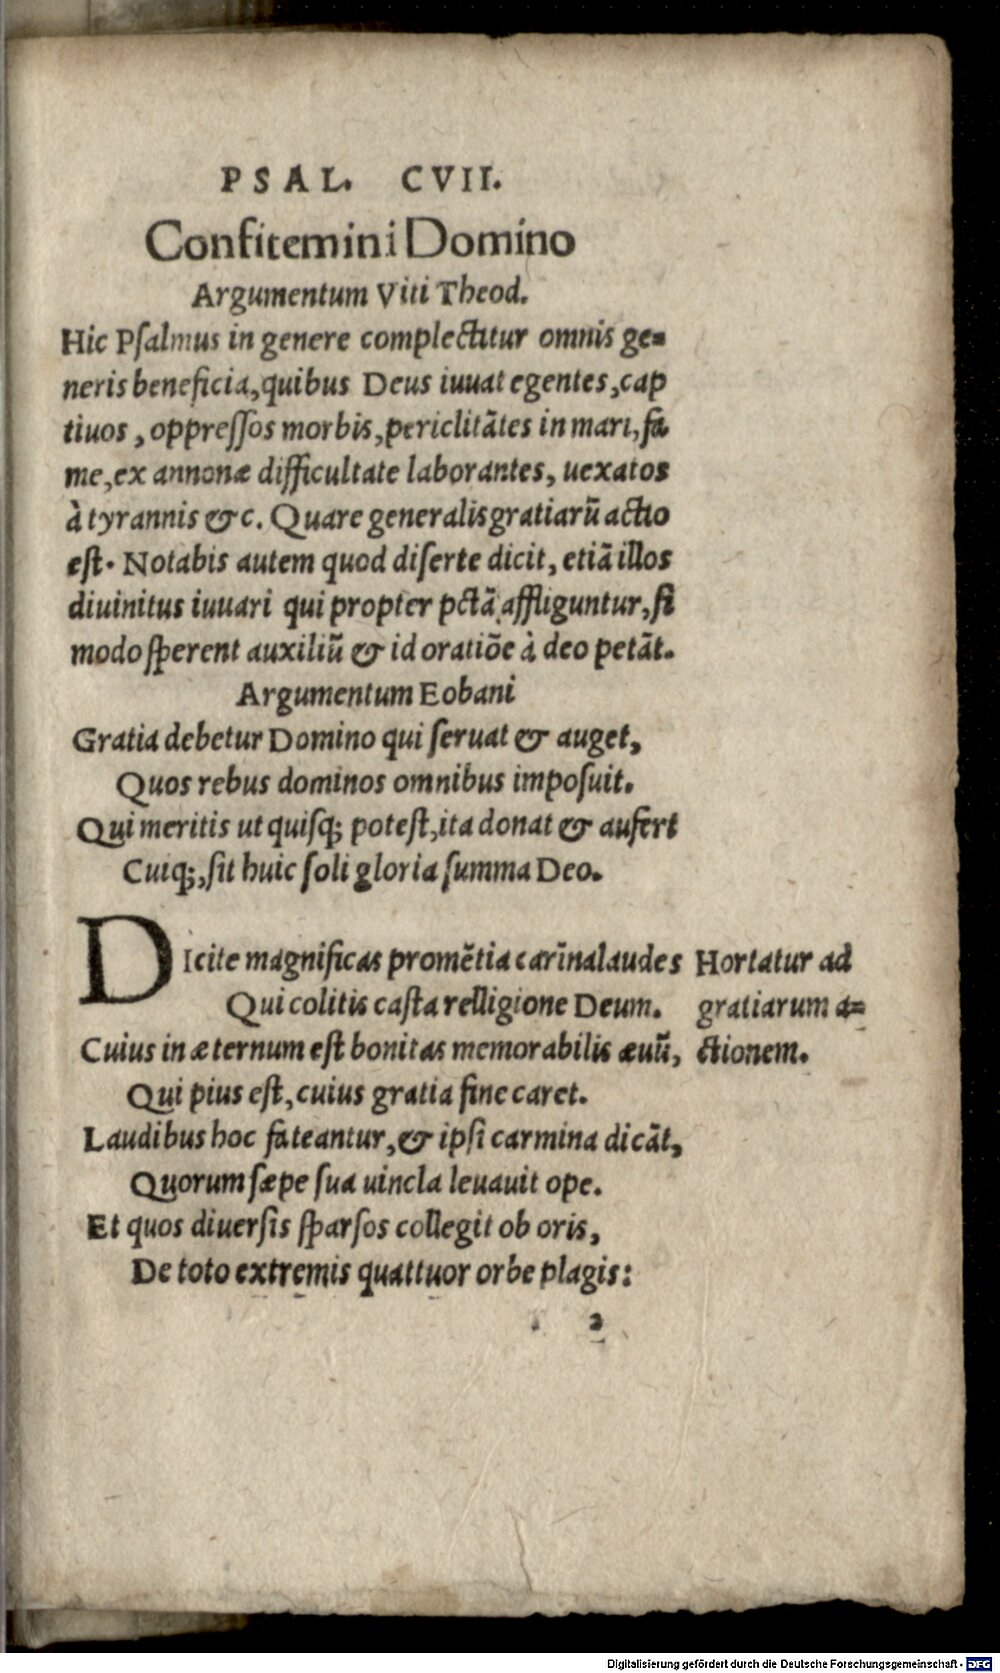 PSAL. CVII.
Confitemini Domino
Argumentum Viti Theod.
Hic Pſalmus in genere complectitur omnis ge=
neris beneficia, quibus Deus iuuat egentes, cap
tiuos, oppreſſos morbis, periclitātes in mari, fa
me, ex annonæ difficultate laborantes, uexatos
à tyrannis &c. Quare generalis gratiarū actio
eſt. Notabis autem quod diſerte dicit, etiā illos
diuinitus iuuari qui propter pctā affliguntur, ſi
modo ſperent auxiliū & id oratiōe à deo petāt.
Argumentum Eobani
Gratia debetur Domino qui ſeruat & auget,
Quos rebus dominos omnibus impoſuit.
Qui meritis ut quiſq; poteſt, ita donat & aufert
Cuiq;, ſit huic ſoli gloria ſumma Deo.
DIcite magnificas promētia carīna laudes
Qui colitis caſta relligione Deum.
Cuius in æternum eſt bonitas memorabilis æuū,
Qui pius eſt, cuius gratia fine caret.
Laudibus hoc fateantur, & ipſi carmina dicāt,
Quorum ſæpe ſua uincla leuauit ope.
Et quos diuerſis ſparſos collegit ob oris,
De toto extremis quattuor orbe plagis:
Hortatur ad
gratiarum a=
ctionem.
2
Digitalisierung gefördert durch die Deutsche Forschungsgemeinschaft - DFG